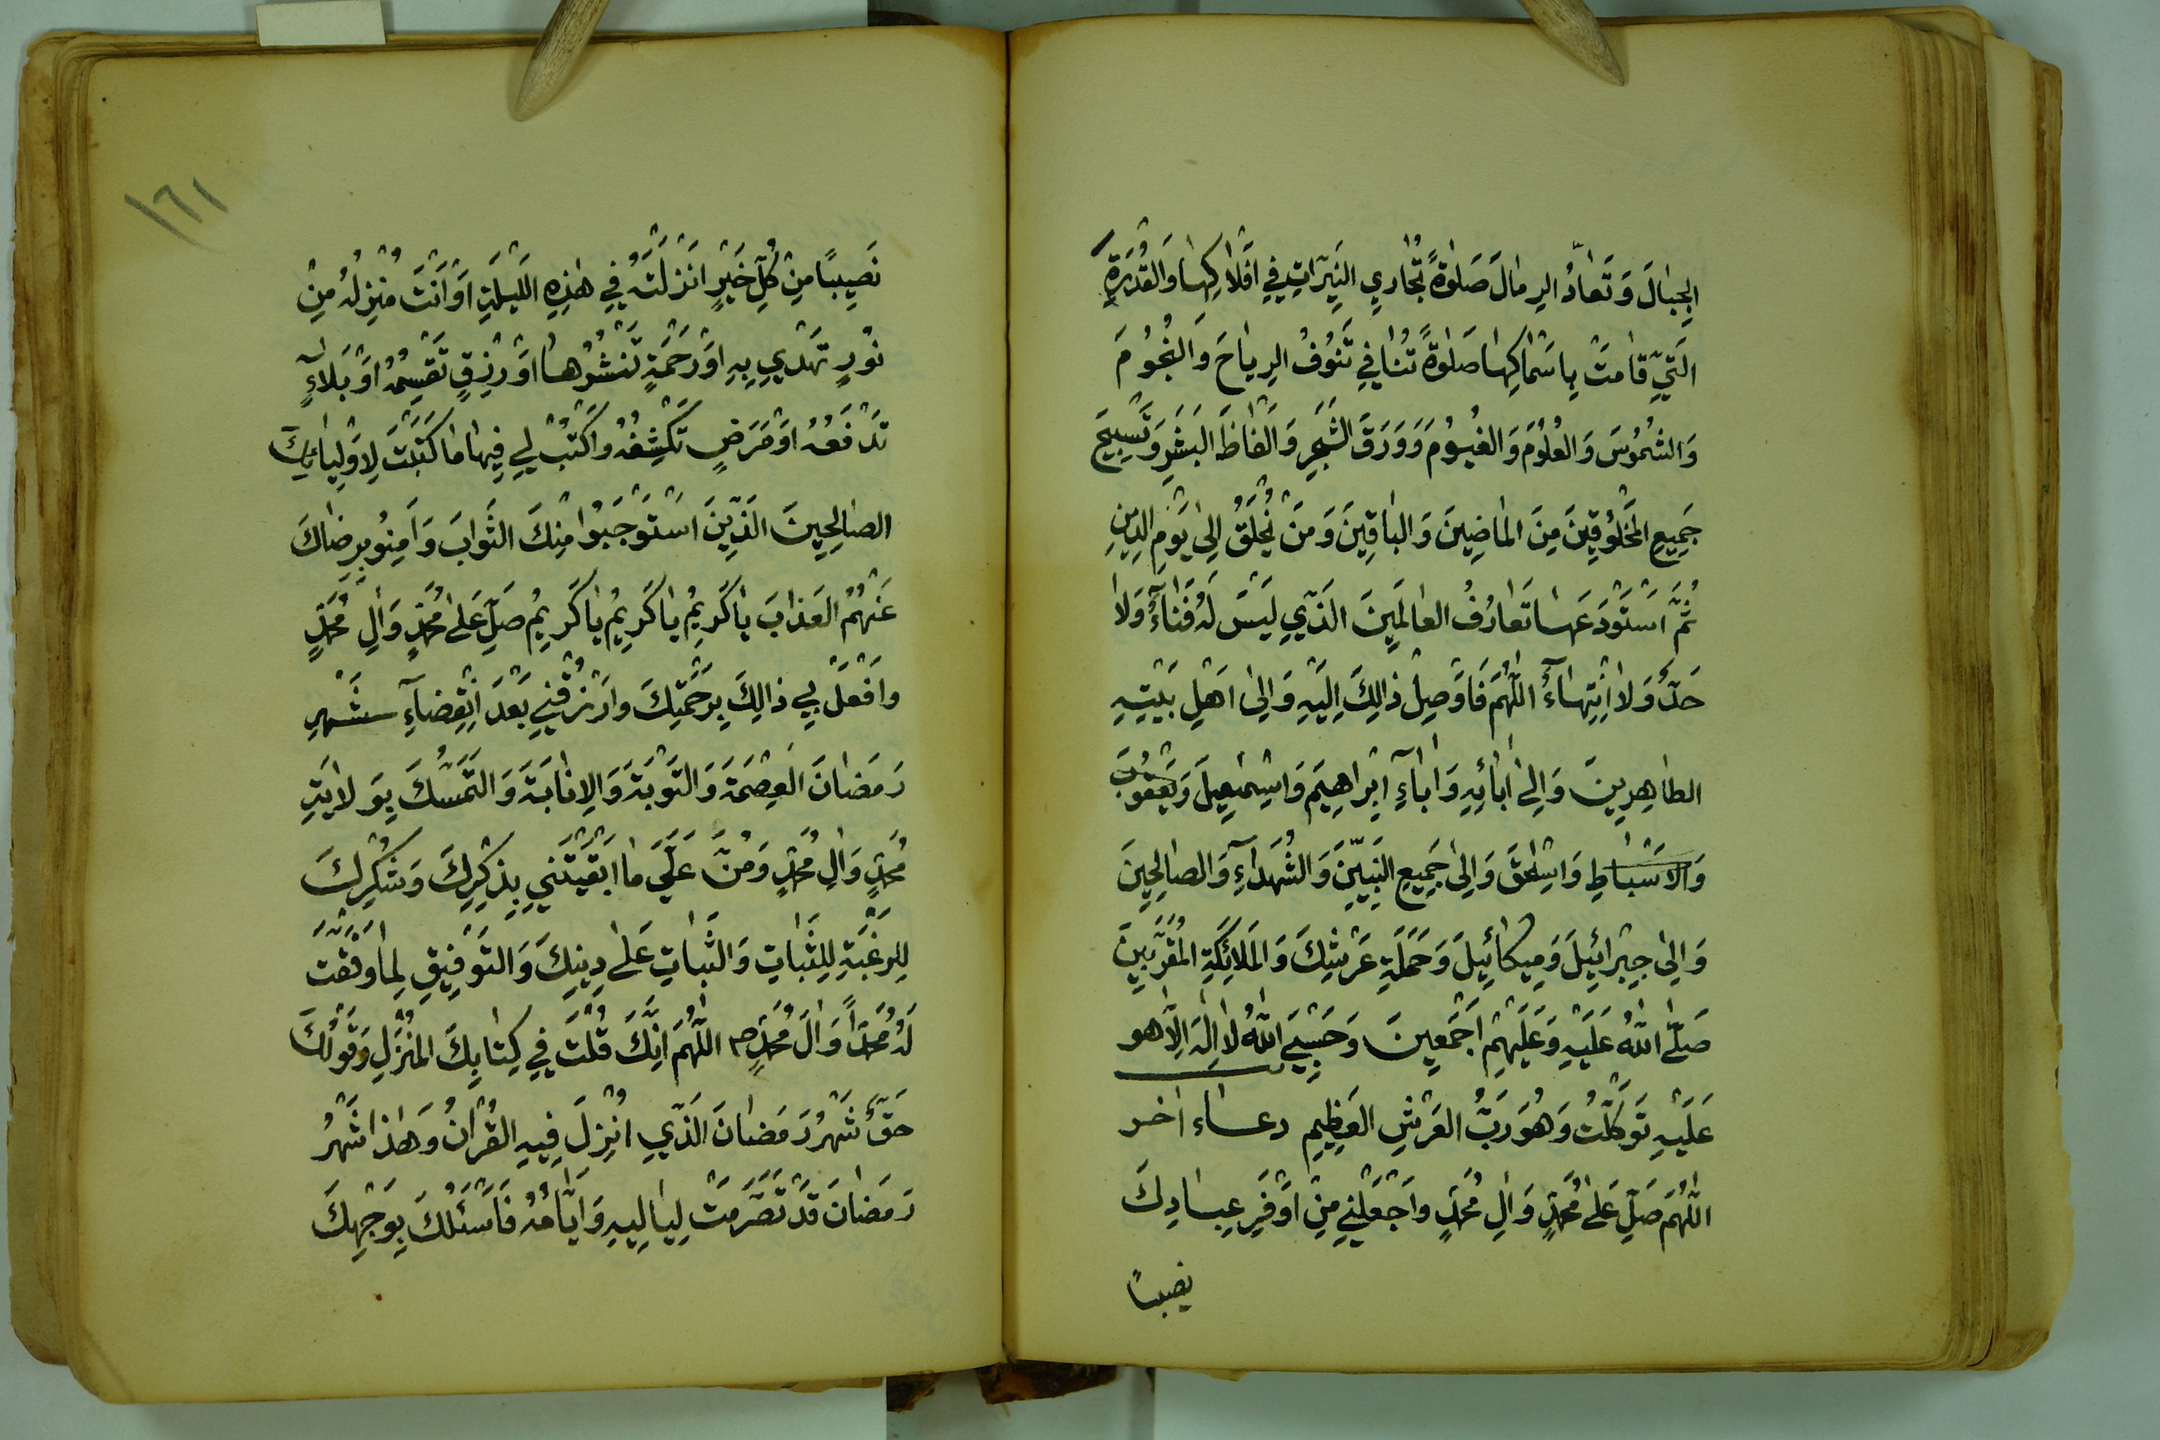 الجِبٰالَ وَتَعٰادُّ الرِمٰالَ صَلوٰةً تُجٰارِي النَيِّرٰاتِ فِي اَفْلٰاكِهٰا وَالقُدْرَةِ
الَتّي قٰامَتْ بِاَسْمٰاكِهٰا صَلوٰةً تُنٰافِي تَنُوفُ الرِياحَ وَالنُجُومَ
وَالشُمُوسَ وَالعُلُومَ وَالغُيُومَ وَوَرَقَ الشَجَرِ وَالْفٰاظَ البَشَرِ وَتَسْبِيحَ
جَمِيعِ المَخْلُوقِينَ مِنَ المٰاضِينَ وَالبٰاقِينَ وَمَنْ يُخْلَقُ اِلىٰ يَوْمِ الدِينِ
ثُمَّ اَسْتَوْدَعَهٰا تَعٰارُفُ العٰالَمِينَ الَذّي لَيْسَ لَهُ فَنٰاءٌ وَلٰا
حَدٌّ وَلٰا اِنْتِهٰاءٌ اللّٰهُمَّ فَاَوْصِلْ ذٰالِكَ اِلَيْهِ وَاِلىٰ اَهْلِ بَيْتِهِ
الطٰاهِرِينَ وَاِلىٰ اٰبٰائِهِ وَاٰبٰاءِ اِبْراهِيمَ وَاِسْمٰعِيلَ وَيَعْقُوبَ
وَالاَسْبٰاطِ وَاِسْحٰقَ وَاِلىٰ جَمِيعِ النَبِيّينَ وَالشُهَدٰاءِ وَالصٰالِحِينَ
وَاِلىٰ جِبْرائِيلَ وَمِيكٰائِيلَ وَحَمَلَةِ عَرْشِكَ وَالمَلائِكَةِ المُقَرَّبِينَ
صَلَّى اللّٰهُ عَلَيْهِ وَعَلَيْهِمْ اَجْمَعِينَ وَحَسْبِيَ اللّٰهُ لٰا اِلٰهَ اِلّٰا هو
عَلَيْهِ تَوَكَّلْتُ وَهُوَ رَبُّ العَرْشِ العَظِيمِ دعاء اخر
اللّٰهُمَّ صَلِّ عَلىٰ مُحَمَّدٍ وَاٰلِ مُحَمَّدٍ وَاجْعَلْنِي مِنْ اَوْفَرِ عِبٰادِكَ
نصيبًا
١٦١
نَصِيبًا مِنْ كُلِّ خَيْرٍ اَنْزَلْتَهُ فِي هٰذِهِ اللَيْلَةِ اَوْ اَنْتَ مُنْزِلُهُ مِنْ
نُوْرٍ تَهْدِي بِهِ اَوْ رَحْمَةٍ تَنْشُرُهٰا اَوْ رِزْقٍ تَقْسِمُهُ اَوْ بَلاٰءٍ
تَدْفَعُهُ اَوْ مَرَضٍ تَكْشِفُهُ وَاكْتُبْ لِي فِيهٰا مٰا كَتَبْتَ لِاَوْلِيٰائِكَ
الصٰالِحِينَ الَذّينَ اسْتَوْجَبُوا مِنْكَ الثَوٰابَ وَاَمِنُو بِرِضٰاكَ
عَنْهُمُ العَذٰابَ يٰا كَرِيمُ يٰا كَرِيمُ يٰا كَرِيمُ صَلِّ عَلىٰ مُحَمَّدٍ وَاٰلِ مُحَمَّدٍ
وَافْعَلْ بِي ذٰالِكَ بِرَحْمَتِكَ وَارْزُقْنِي بَعْدَ انْقِضٰاءِ شَهْرِ
رَمَضٰانَ العِصْمَةَ وَالتَوْبَةَ وَالاِنٰابَةَ وَالتَمَسُّكَ بِوَلٰايَةِ
مُحَمَّدٍ وَاٰلِ مُحَمَّدٍ وَمُنَّ عَلَيَّ مٰا اَبْقَيْتَنِي بِذِكْرِكَ وَشُكْرِكَ
لِلرَغْبَةِ لِلثَبٰاتِ وَالثَبٰاتِ عَلىٰ دِينِكَ وَالتَوْفِيقِ لِمٰا وَفَّقْتَ
لَهُ مُحَمَّداً وَاٰلَ مُحَمَّدٍ ص اللّٰهُمَّ اِنَّكَ قُلْتَ فِي كِتٰابِكَ المُنْزَلِ وَقَوْلُكَ
حَقٌّ شَهْرُ رَمَضٰانَ الَذّي اُنْزِلَ فِيهِ القُرْاٰنُ وَهٰذا شَهْرُ
رَمَضٰانَ قَدْ تَصَرَّمَتْ لِيٰالِيهِ وَاَيّٰامُهُ فَاَسْئَلُكَ بِوَجْهِكَ